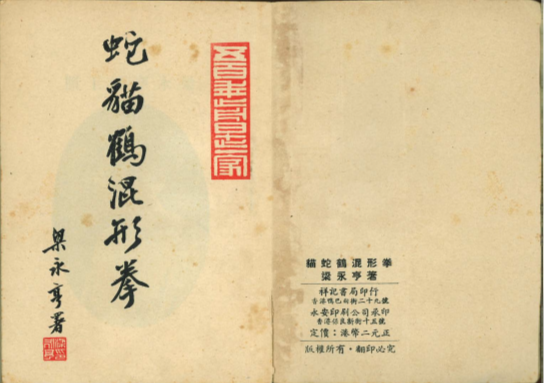 蛇貓鶴混形拳
梁永亨著
貓蛇鶴混形拳
梁永亨著
祥記書局印行
香港鴨巴甸街二十九號
永安印刷公司承印
香港保良新街十五號
定價：港幣二元正
版權所有・翻印必究